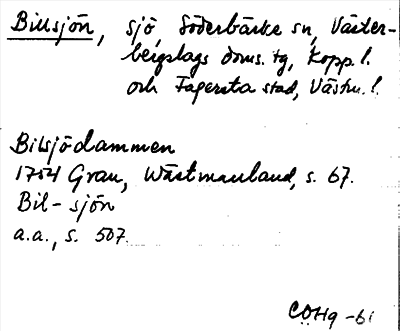 Billsjön, sjö, Söderbärke sn, Väster-
bergslags doms. tg, Kopp. l.
och Fagersta stad, Västm. l.
Bilsjödammen
1754 Grau, Wästmanland, s. 67.
Bil-sjön
a.a., s. 507.
COHg -61